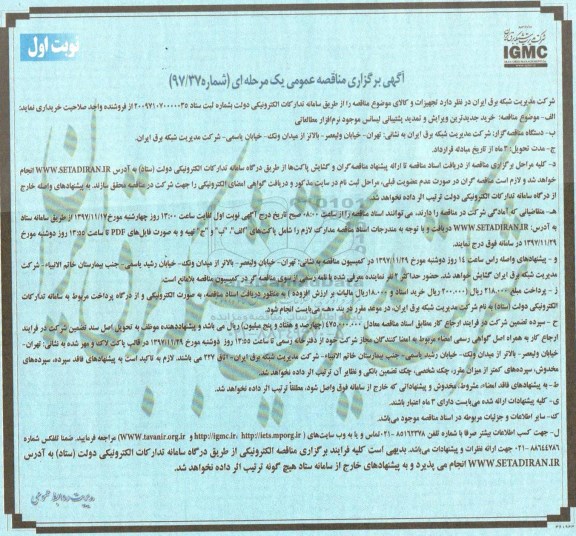 شرکت مدیریت شبکه برق ایران
IGMC
نوبت اول
آگهی برگزاری مناقصه عمومی یک مرحله ای (شماره ۹۷/۳۷)
شرکت مدیریت شبکه برق ایران در نظر دارد تجهیزات و کالای موضوع مناقصه را از طریق سامانه تدارکات الکترونیکی دولت بشماره ثبت ستاد ۲۰۰۹۷۱۰۷۰۰۰۰۰۳۵ از فروشنده واجد صلاحیت خریداری نماید:
الف- موضوع مناقصه: خرید جدیدترین ویرایش و تمدید پشتیبانی لیسانس موجود نرم‌افزار مطالعاتی
ب- دستگاه مناقصه گزار: شرکت مدیریت شبکه برق ایران به نشانی: تهران- خیابان ولیعصر- بالاتر از میدان ونک- خیابان یاسمی- شرکت مدیریت شبکه برق ایران.
ج- مدت تحویل: ۳ ماه از تاریخ مبادله قرارداد.
د- کلیه مراحل برگزاری مناقصه از دریافت اسناد مناقصه تا ارائه پیشنهاد مناقصه‌گران و گشایش پاکت‌ها از طریق درگاه سامانه تدارکات الکترونیکی دولت (ستاد) به آدرس WWW.SETADIRAN.IR انجام
خواهد شد و لازم است مناقصه گران در صورت عدم عضویت قبلی، مراحل ثبت نام در سایت مذکور و دریافت گواهی امضای الکترونیکی را جهت شرکت در مناقصه محقق سازند. به پیشنهادهای واصله خارج
از درگاه سامانه تدارکات الکترونیکی دولت ترتیب اثر داده نخواهد شد.
هـ- متقاضیانی که آمادگی شرکت در مناقصه را دارند، می توانند اسناد مناقصه را از ساعت ۰۸:۰۰ صبح تاریخ درج آگهی نوبت اول لغایت ساعت ۱۳:۰۰ روز چهارشنبه مورخ ۱۳۹۷/۱۱/۱۷ از طریق سامانه ستاد
به آدرس: WWW.SETADIRAN.IR دریافت و با توجه به مندرجات اسناد مناقصه مدارک لازم را شامل پاکت‌های "الف"، "ب" و "ج" تهیه و به صورت فایل‌های PDF تا ساعت ۱۳:۵۵ روز دوشنبه مورخ
۱۳۹۷/۱۱/۲۹ در سامانه فوق درج نمایند.
و- پیشنهادهای واصله راس ساعت ۱۴ روز دوشنبه مورخ ۱۳۹۷/۱۱/۲۹ در کمیسیون مناقصه به نشانی: تهران- خیابان ولیعصر- بالاتر از میدان ونک- خیابان رشید یاسمی- جنب بیمارستان خاتم الانبیاء- شرکت
مدیریت شبکه برق ایران گشایش خواهد شد. حضور حداکثر ۲ نفر نماینده معرفی شده با نامه رسمی از سوی مناقصه گر در کمیسیون مناقصه بلامانع است.
ز- پرداخت مبلغ ۲۱۸,۰۰۰ ریال (۲۰۰,۰۰۰ ریال خرید اسناد و ۱۸,۰۰۰ ریال مالیات بر ارزش افزوده) به منظور دریافت اسناد مناقصه، به صورت الکترونیکی و از درگاه پرداخت مربوط به سامانه تدارکات
الکترونیکی دولت (ستاد) به نام شرکت مدیریت شبکه برق ایران، در موعد مقرر در بند «هـ» می‌بایست انجام شود.
ح- سپرده تضمین شرکت در فرایند ارجاع کار مطابق اسناد مناقصه معادل ۴۷۵,۰۰۰,۰۰۰ (چهارصد و هفتاد و پنج میلیون) ریال می باشد و پیشنهاددهنده موظف به تحویل اصل سند تضمین شرکت در فرایند
ارجاع کار به همراه اصل گواهی رسمی امضاء مربوط به امضا کنندگان مجاز شرکت خود از دفترخانه رسمی تا ساعت ۱۳:۵۵ روز دوشنبه مورخ ۱۳۹۷/۱۱/۲۹ در قالب پاکت لاک و مهر شده به نشانی: تهران-
خیابان ولیعصر- بالاتر از میدان ونک- خیابان رشید یاسمی- جنب بیمارستان خاتم الانبیاء- شرکت مدیریت شبکه برق ایران- اتاق ۲۳۷ می باشند. لازم به تاکید است به پیشنهادهای فاقد سپرده، سپرده‌های
مخدوش، سپرده‌های کمتر از میزان مقرر، چک شخصی، چک تضمین بانکی و نظایر آن ترتیب اثر داده نخواهد شد.
ط- به پیشنهادهای فاقد امضاء، مشروط، مخدوش و پیشنهاداتی که خارج از سامانه فوق واصل شود، مطلقاً ترتیب اثر داده نخواهد شد.
ی- کلیه پیشنهادات ارائه شده می‌بایست دارای ۳ ماه اعتبار باشند.
ک- سایر اطلاعات و جزئیات مربوطه در اسناد مناقصه موجود می‌باشد.
ل- جهت کسب اطلاعات بیشتر صرفا با شماره تلفن ۸۵۱۶۲۳۷۸-۰۲۱ تماس و یا به وب سایت‌های (http://iets.mporg.ir ،http://igmc.ir و WWW.tavanir.org.ir) مراجعه فرمایید. ضمنا تلفکس شماره
۸۸۶۴۴۷۸۶-۰۲۱ جهت ارائه نظرات و پیشنهادات می‌باشد. بدیهی است کلیه فرآیند برگزاری مناقصه الکترونیکی از طریق درگاه سامانه تدارکات الکترونیکی دولت (ستاد) به آدرس
WWW.SETADIRAN.IR انجام می پذیرد و به پیشنهادهای خارج از سامانه ستاد هیچ گونه ترتیب اثر داده نخواهد شد.
مدیریت روابط عمومی